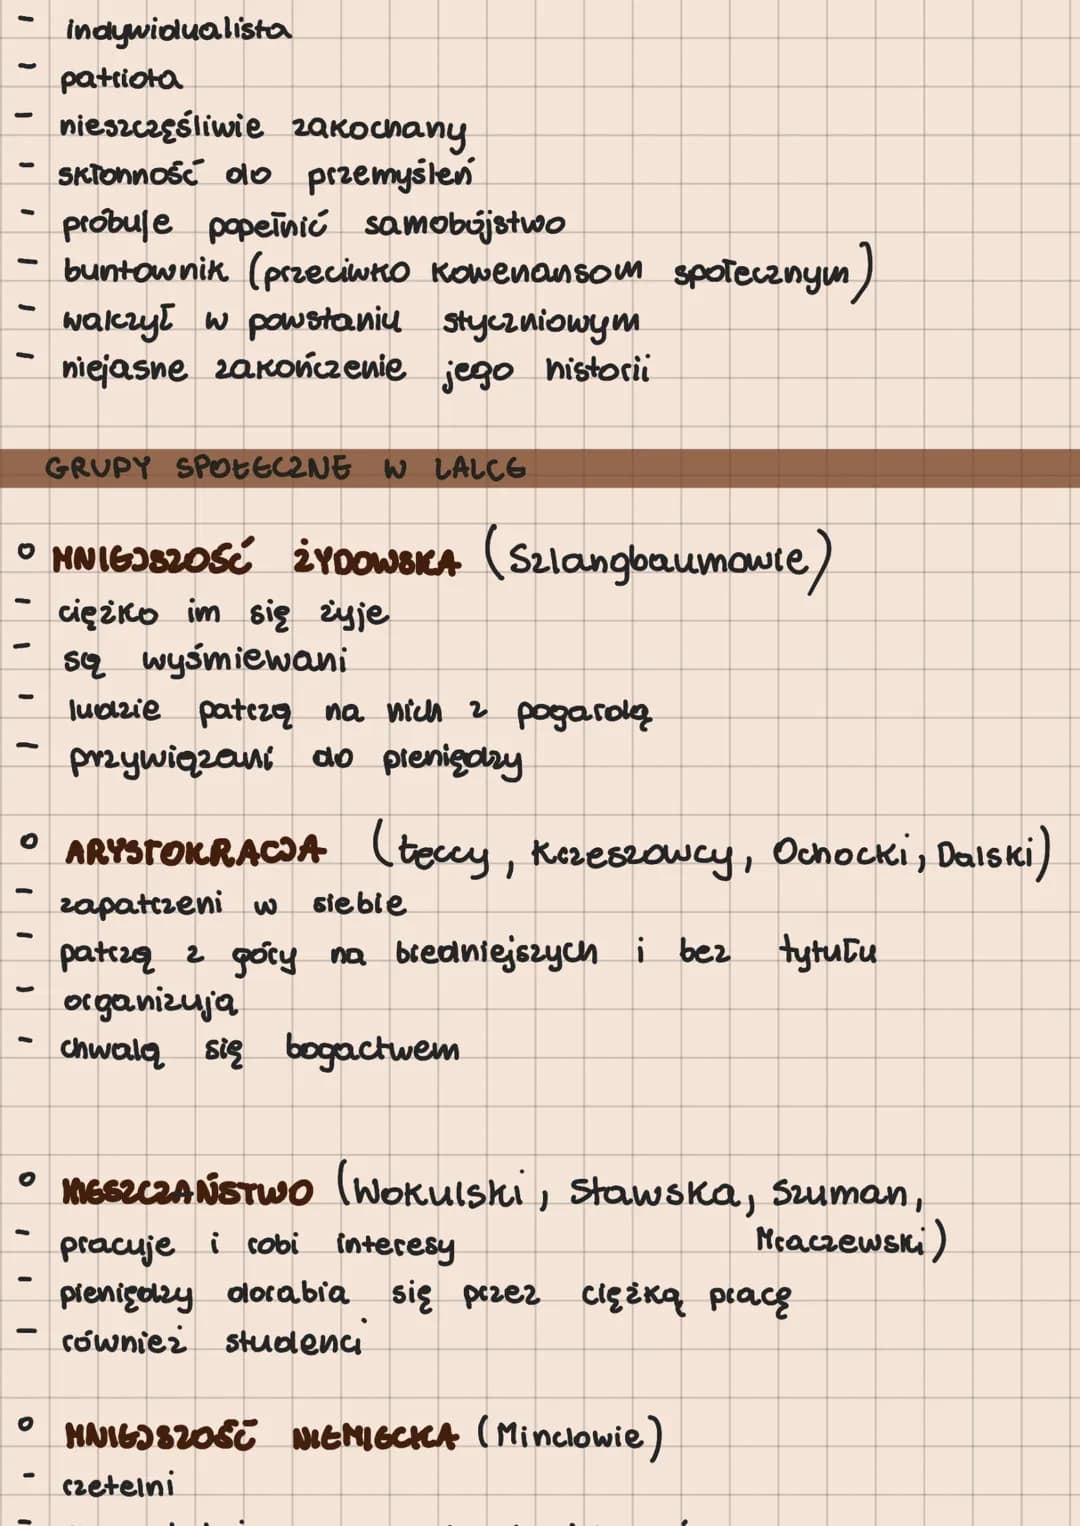 - indywidualista
- patriota
- nieszczęśliwie zakochany
- skłonność do przemyśleń
- próbuje popełnić samobójstwo
- buntownik (przeciwko kowenansom społecznym)
- walczył w powstaniu styczniowym
- niejasne zakończenie jego historii
GRUPY SPOŁECZNE W LALCE
° MNIEJSZOŚĆ ŻYDOWSKA (Szlangbaumowie)
- ciężko im się żyje
- są wyśmiewani
- ludzie patrzą na nich z pogardą
- przywiązani do pieniędzy
° ARYSTOKRACJA (Łęccy, Krzeszowcy, Ochocki, Dalski)
- zapatrzeni w siebie
- patrzą z góry na biedniejszych i bez tytułu
- organizują
- chwalą się bogactwem
° MIESZCZAŃSTWO (Wokulski, Stawska, Szuman,
Mraczewski)
- pracuje i robi interesy
- pieniędzy dorabia się przez ciężką pracę
- również studenci
° MNIEJSZOŚĆ NIEMIECKA (Minclowie)
- rzetelni